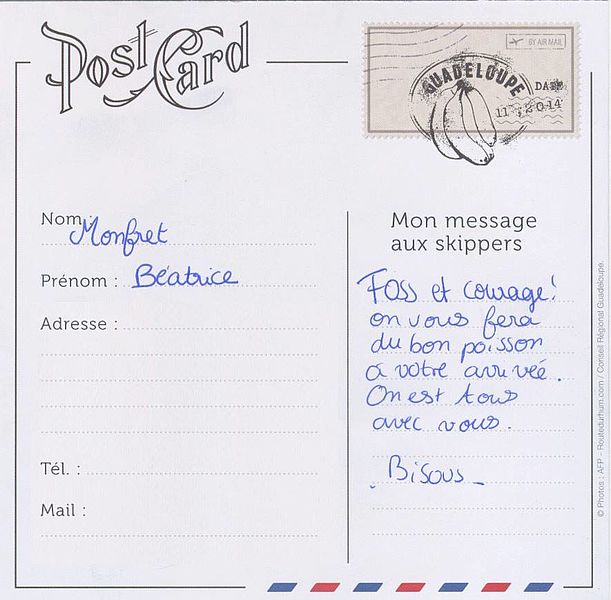 Post Card
BY AIR MAIL
GUADELOUPE
DATE
11, 2014
Nom
Monfret
Prénom : Béatrice
Adresse :
Tél. :
Mail :
Mon message
aux skippers
Foss et courage !
on vous fera
du bon poisson
à votre arruvéé.
On est tous
avec vous.
Bisous
© Photos : AFP - Routedurhum.com / Conseil Régional Guadeloupe.